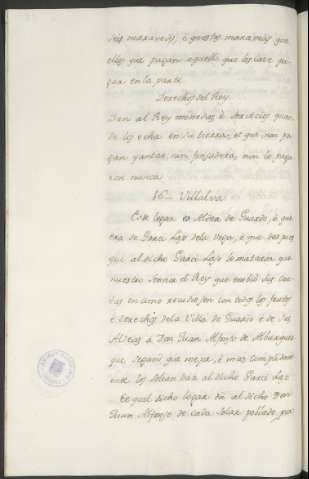 seis maravedis, é quatro maravedis que
ellos que pagan aquello que les cave pa-
gar en la parte.
Derechos del Rey.
Dan al Rey monedas é servicios quan-
do los echa en su tierra, et que non pa-
gan yantar, nin fonsadera, nin le paga-
ron nunca.
16 Villalva
Este logar es Aldea de Guardo, é que
era de Garci Laso dela Vega, é que despues
que al dicho Garci Laso lo mataron que
nuestro Sennor el Rey que embió sus car-
tas en como recudiesen con todos los fueros
é derechos dela Villa de Guardo é de sus
Aldeas á Don Juan Alfonso de Alburquer-
que segunt que mejor, é mas complidam-
ente los solian dar al dicho Garci Laso
é que dicho logar dan al dicho Don
Juan Alfonso de cada Solar poblado por